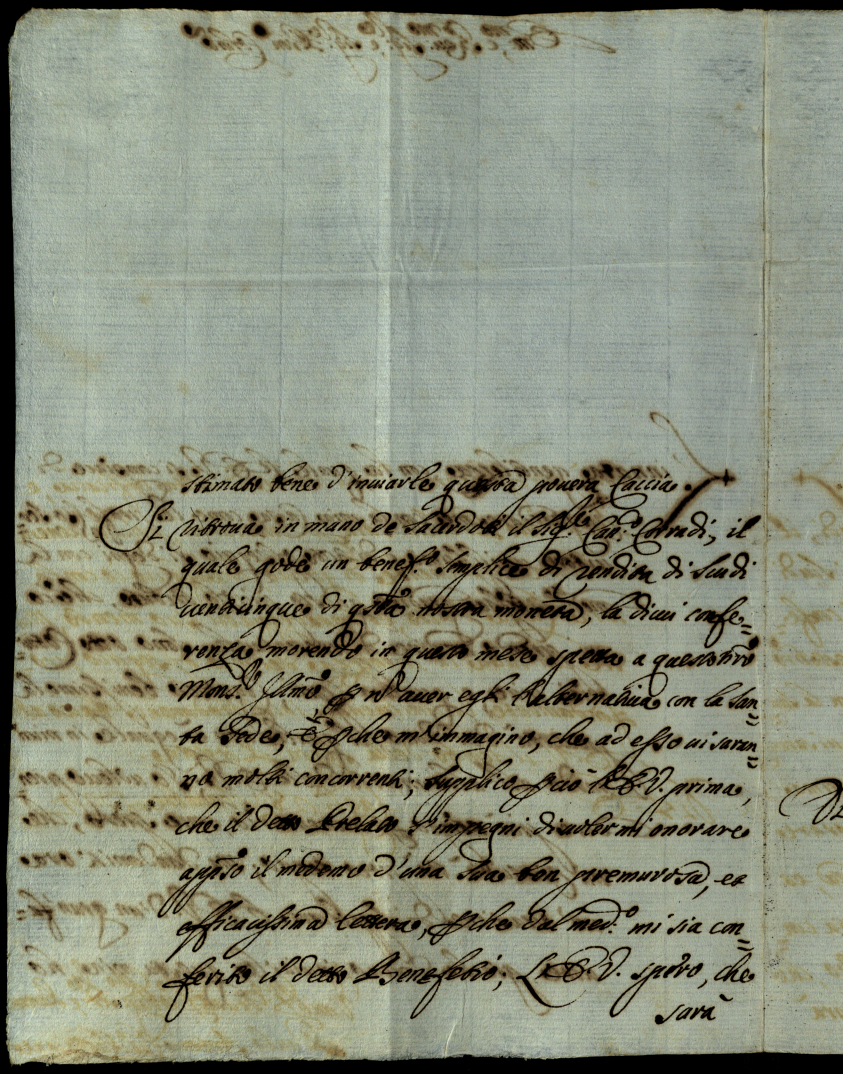 stimato bene d'inviarle questa povera Caccia.
Si ritrova in mano de Sacerdoti il Sig.r Can.co Corradi, il
quale gode un benef.o semplice di rendita di Scudi
venticinque di q.sta nostra moneta, la di cui confe=
renza morendo in questo mese spetta a questo nro
Mons.r Illmo p nō aver egli l'alternativa con la San=
ta Sede, et pche m'immagino, che ad esso vi saran=
no molti concorrenti; supplico pciò l'E.V. prima,
che il detto Prelato s'impegni di volermi onorare
appso il medemo d'una sua ben premurosa, et
efficacissima lettera, pche dal med.o mi sia con=
ferito il detto Benefetio; L'E.V. spero, che
sarà